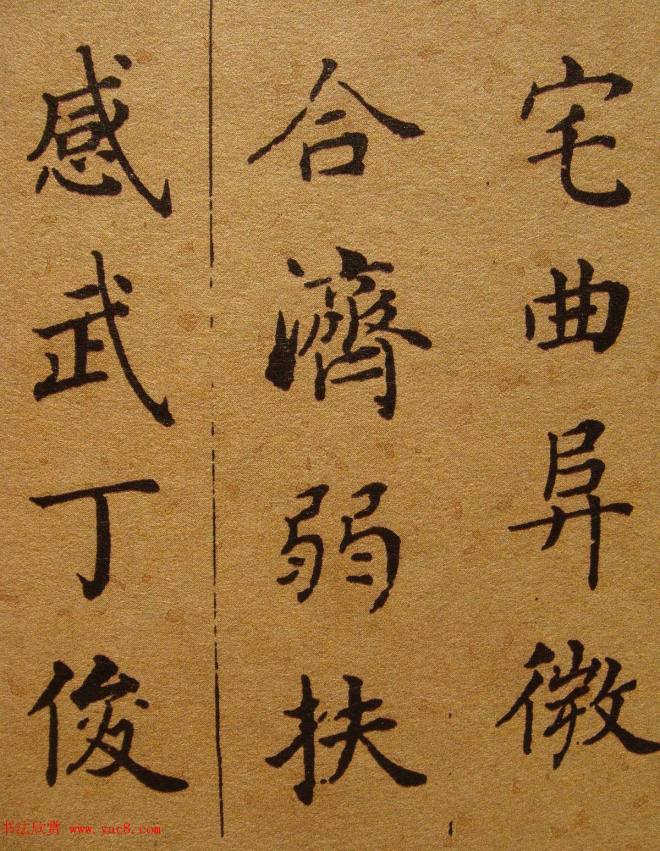 宅曲阜微
合濟弱扶
感武丁俊
书法欣赏 www.yac8.com